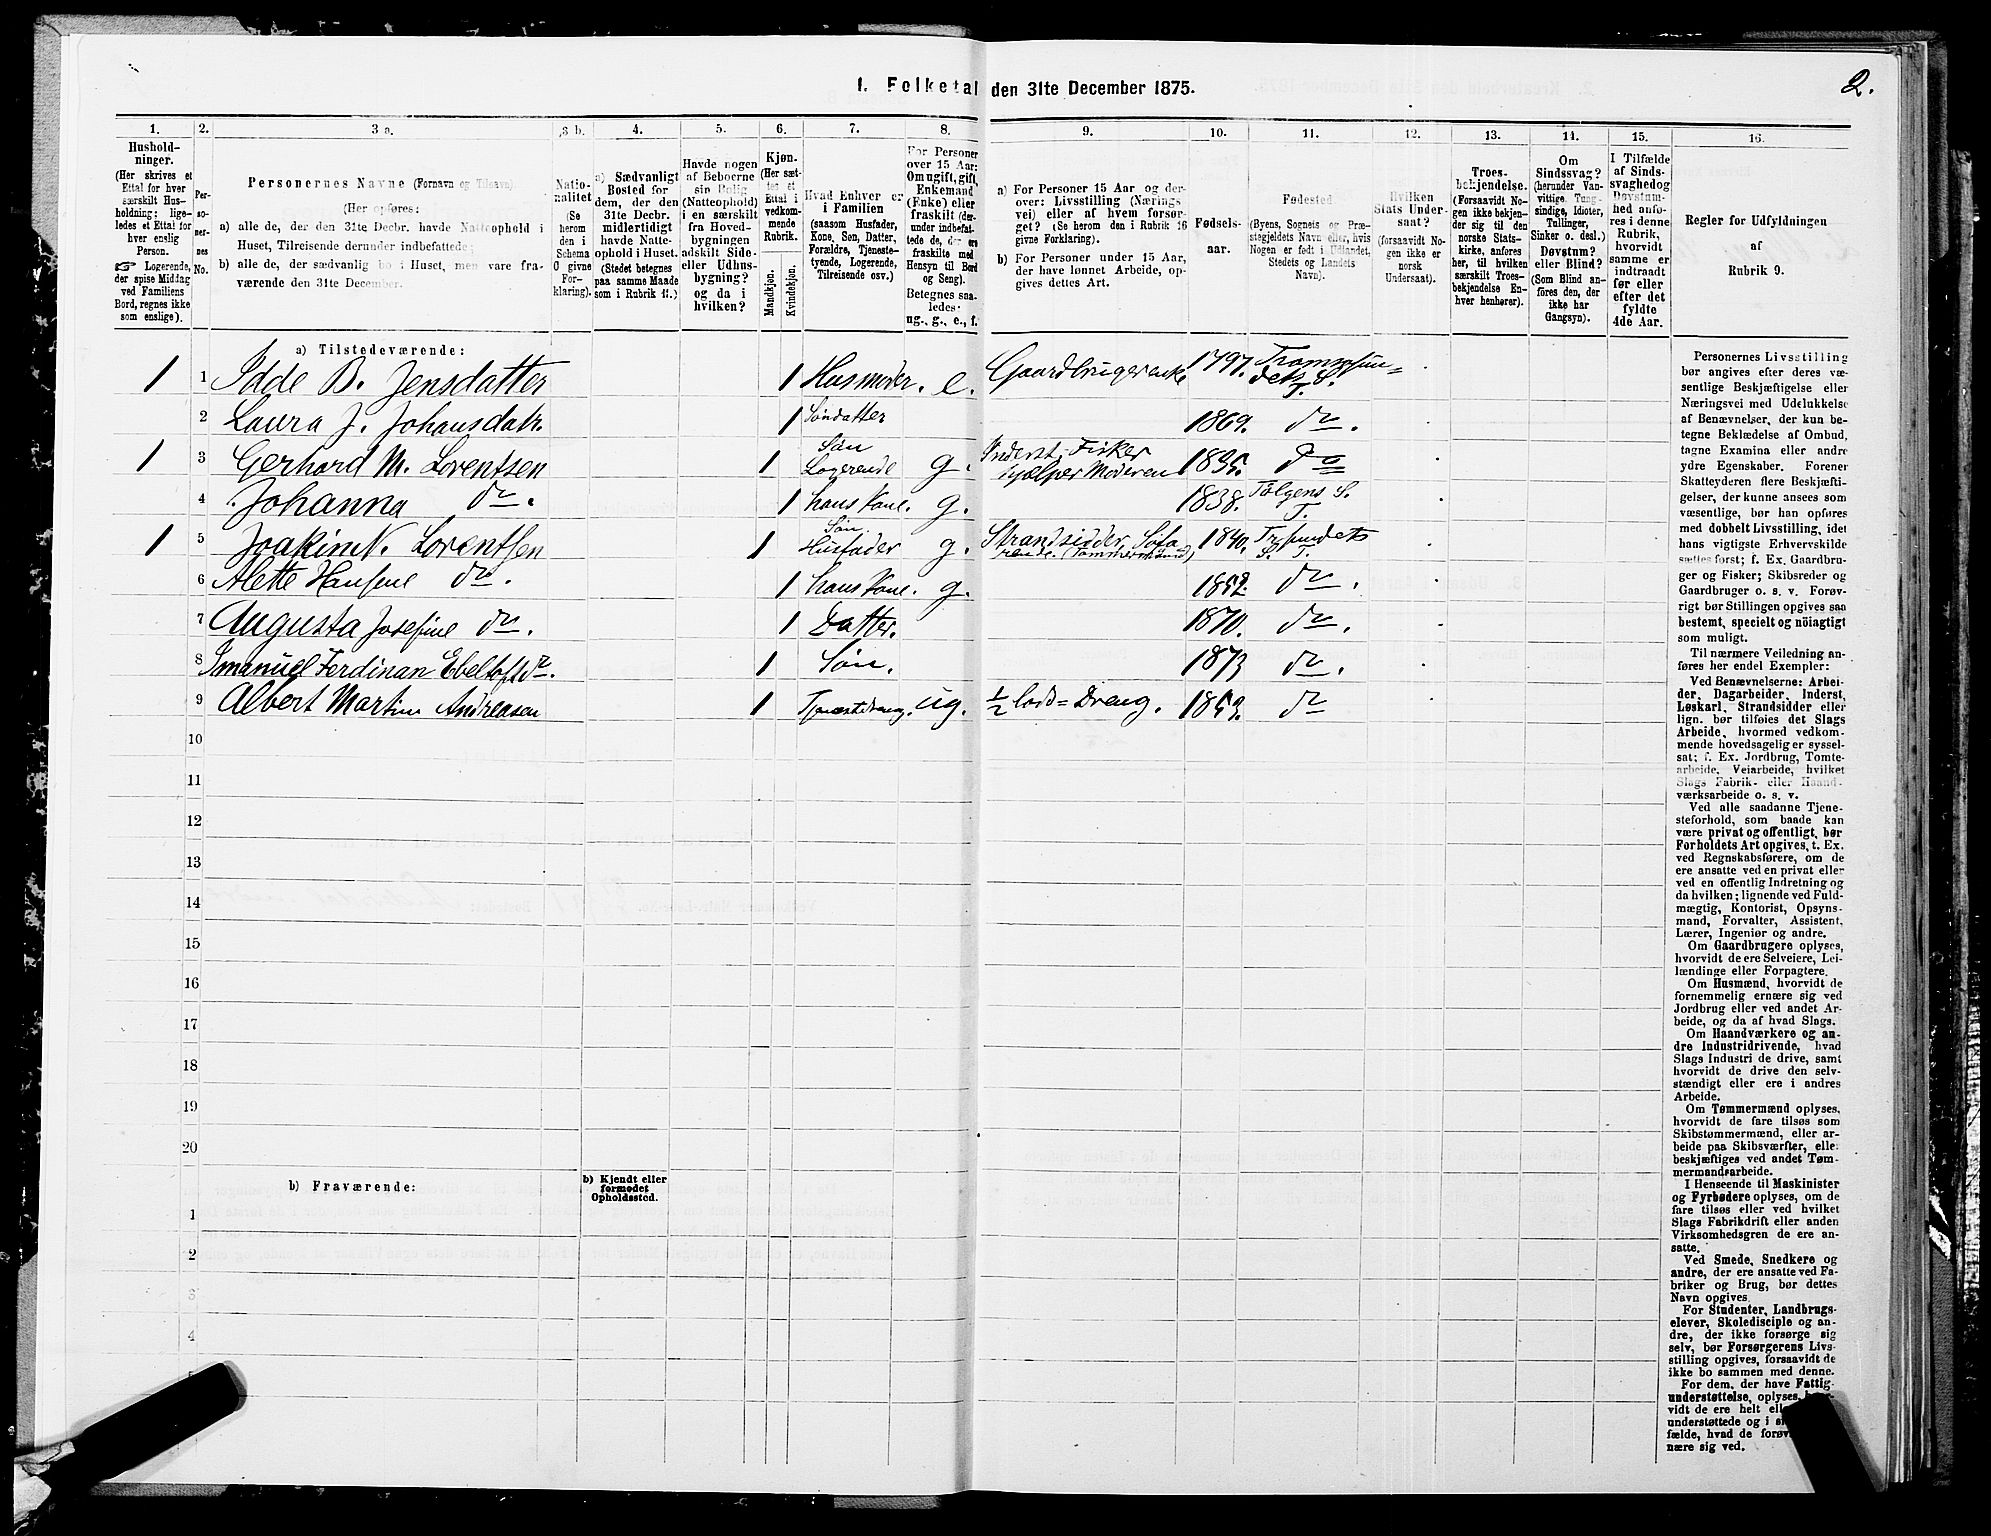 1. Folketal den 31te December 1875.
2.
1. 2. 3 a. 3 b. 4. 5. 6. 7. 8. 9. 10. 11. 12. 13. 14. 15. 16.
Hushold-
ninger.
(Her skrives et
Ettal for hver
særskilt Hus-
holdning; lige-
ledes et Ettal for
hver enslig
Person.
☞ Logerende,
der spise Middag
ved Familiens
Bord, regnes ikke
som enslige).
Per-
so-
ner-
nes
No.
Personernes Navne (Fornavn og Tilnavn).
(Her opføres:
a) alle de, der den 31te Decbr. havde Natteophold i
Huset, Tilreisende derunder indbefattede;
b) alle de, der sædvanlig bo i Huset, men vare fra-
værende den 31te December.
Natio-
nalitet
(Se
herom
den i
Schema
O givne
For-
klaring).
a) Sædvanligt
Bosted for
dem, der den
31te Decbr.
midlertidigt
havde Natte-
ophold i Huset.
(Stedet betegnes
paa samme Maade
som i Rubrik 11.)
Havde nogen
af Beboerne
sin Bolig
(Natteophold)
i en særskilt
fra Hoved-
bygningen
adskilt Side-
eller Udhus-
bygning?
og da i
hvilken?
Kjøn.
(Her sæt-
tes et
Ettal i
vedkom-
mende
Rubrik.
Mandkjøn.
Kvindekjøn.
Hvad Enhver er
i Familien
(saasom Husfader,
Kone, Søn, Datter,
Forældre, Tjeneste-
tyende, Logerende,
Tilreisende osv.)
For Personer
over 15 Aar:
Om ugift, gift,
Enkemand
(Enke) eller
fraskilt (der-
under indbefat-
tede de, der ere
fraskilte med
Hensyn til Bord
og Seng).
Betegnes saa-
ledes:
ug., g., e., f.
a) For Personer 15 Aar og der-
over: Livsstilling (Nærings-
vei) eller af hvem forsør-
get? (Se herom den i Rubrik 16
givne Forklaring).
b) For Personer under 15 Aar,
der have lønnet Arbeide, op-
gives dettes Art.
Fødsels-
aar.
Fødested
(Byens, Sognets og Præ-
stegjeldets Navn eller, hvis
Nogen er født i Udlandet,
Stedets og Landets
Navn).
Hvilken
Stats Under-
saat?
(forsaavidt No-
gen ikke er
norsk
Undersaat).
Troes-
bekjendelse.
(Forsaavidt No-
gen ikke bekjen-
der sig til den
norske Stats-
kirke, anføres
her, til hvilken
særskilt Troes-
bekjendelse En-
hver henhører).
Om
Sindssvag?
(herunder Van-
vittige, Tung-
sindige, Idioter,
Tullinger,
Sinker o. desl.)
Døvstum?
eller Blind?
(Som Blind an-
føres den, der
ikke har
Gangsyn).
I Tilfælde
af Sinds-
svaghedog
Døvstum-
hed anfø-
res i denne
Rubrik,
hvorvidt
samme er
indtraadt
før eller
efter det
fyldte
4de Aar.
Regler for Udfyldningen
af
Rubrik 9.
a) Tilstedeværende:
1 1 Idde B. Jensdatter 1 Husmoder. e. Gaardbrugerenke 1797. Tromsøsun=
dets S.
T.
2 Laura J. Johansdatr. 1 Søndatter 1869. do.
Søn
1 3 Gerhard M. Lorentsen 1 Logerende g. Inderst. Fisker
hjælper Moderen 1835. do
4 Johanna do. 1 hans Kone. g. 1838. S.
T.
Søn.
1 5 Joakim N. Lorentsen 1 Husfader g. Strandsidder, 1840. Tr.sundets
S. T.
6 Alette Hansine do. 1 hans Kone. g. 1852. do.
7 Augusta Josefine do. 1 Datter. 1870. do.
8 Imanuel Ferdinan Ebeltoft do. 1 Søn. 1873 do.
9 Albert Martin Andreasen 1 Tjenestedreng. ug. ½ lods=Dreng. 1853. do
10
11
12
13
14
15
16
17
18
19
20
b) Fraværende:
b) Kjendt eller
formodet
Opholdssted.
1
2
3
4
Personernes Livsstilling
bør angives efter deres væ-
sentlige Beskjæftigelse eller
Næringsvei med Udelukkelse
af Benævnelser, der kun be-
tegne Beklædelse af Ombud,
tagne Examina eller andre
ydre Egenskaber. Forener
Skatteyderen flere Beskjæfti-
gelser, der kunne ansees som
væsentlige, bør han opføres
med dobbelt Livsstilling, idet
hans vigtigste Erhvervskilde
sættes først; f. Ex. Gaardbru-
ger og Fisker; Skibsreder og
Gaardbruger o. s. v. Forøv-
rigt bør Stillingen opgives saa
bestemt, specielt og nöiagtigt
som muligt.
Til nærmere Veiledning an-
føres her endel Exempler:
Ved Benævnelserne: Arbei-
der, Dagarbeider, Inderst,
Løskarl, Strandsidder eller
lign. bør tilføies det Slags
Arbeide, hvormed vedkom-
mende hovedsagelig er syssel-
sat; f. Ex. Jordbrug, Tomte-
arbeide, Veiarbeide, hvilket
Slags Fabrik- eller Haand-
værksarbeide o. s. v.
Ved alle saadanne Tjene-
steforhold, som baade kan
være privat og offentligt, bør
Forholdets Art opgives, t. Ex.
ved Regnskabsførere, om de
ere ansatte ved en privat eller
ved en offentlig Indretning og
da hvilken; lignende ved Fuld-
mægtig, Kontorist, Opsyns-
mand, Forvalter, Assistent,
Lærer, Ingeniør og andre.
Om Gaardbrugere oplyses,
hvorvidt de ere Selveiere, Lei-
lændinge eller Forpagtere.
Om Husmænd, hvorvidt de
fornemmelig ernære sig ved
Jordbrug eller ved andet Ar-
beide, og da af hvad Slags.
Om Haandværkere og an-
dre Industridrivende, hvad
Slags Industri de drive, samt
hvorvidt de drive den selv-
stændigt eller ere i andres
Arbeide.
Om Tømmermænd oplyses,
hvorvidt de fare tilsøs som
Skibstømmermænd, eller ar-
beide paa Skibsværfter, elle
beskjæftiges ved andet Tøm-
mermandsarbeide.
I Henseende til Maskinister
og Fyrbødere oplyses, om de
fare tilsøs eller ved hvilket
Slags Fabrikdrift eller anden
Virksomhedsgren de ere an-
satte.
Ved Smede, Snedkere og
andre, der ere ansatte ved Fa-
briker og Brug, bør dettes
Navn opgives.
For Studenter, Landbrugs-
elever, Skoledisciple og an-
dre, der ikke forsørge sig
selv, bør Forsørgerens Livs-
stilling opgives, forsaavidt de
ikke bo sammen med denne.
For dem, der have Fattig-
understøttelse, oplyses,
vidt de ere helt
understøttede og i
fælde, hvad de
nære sig ved.